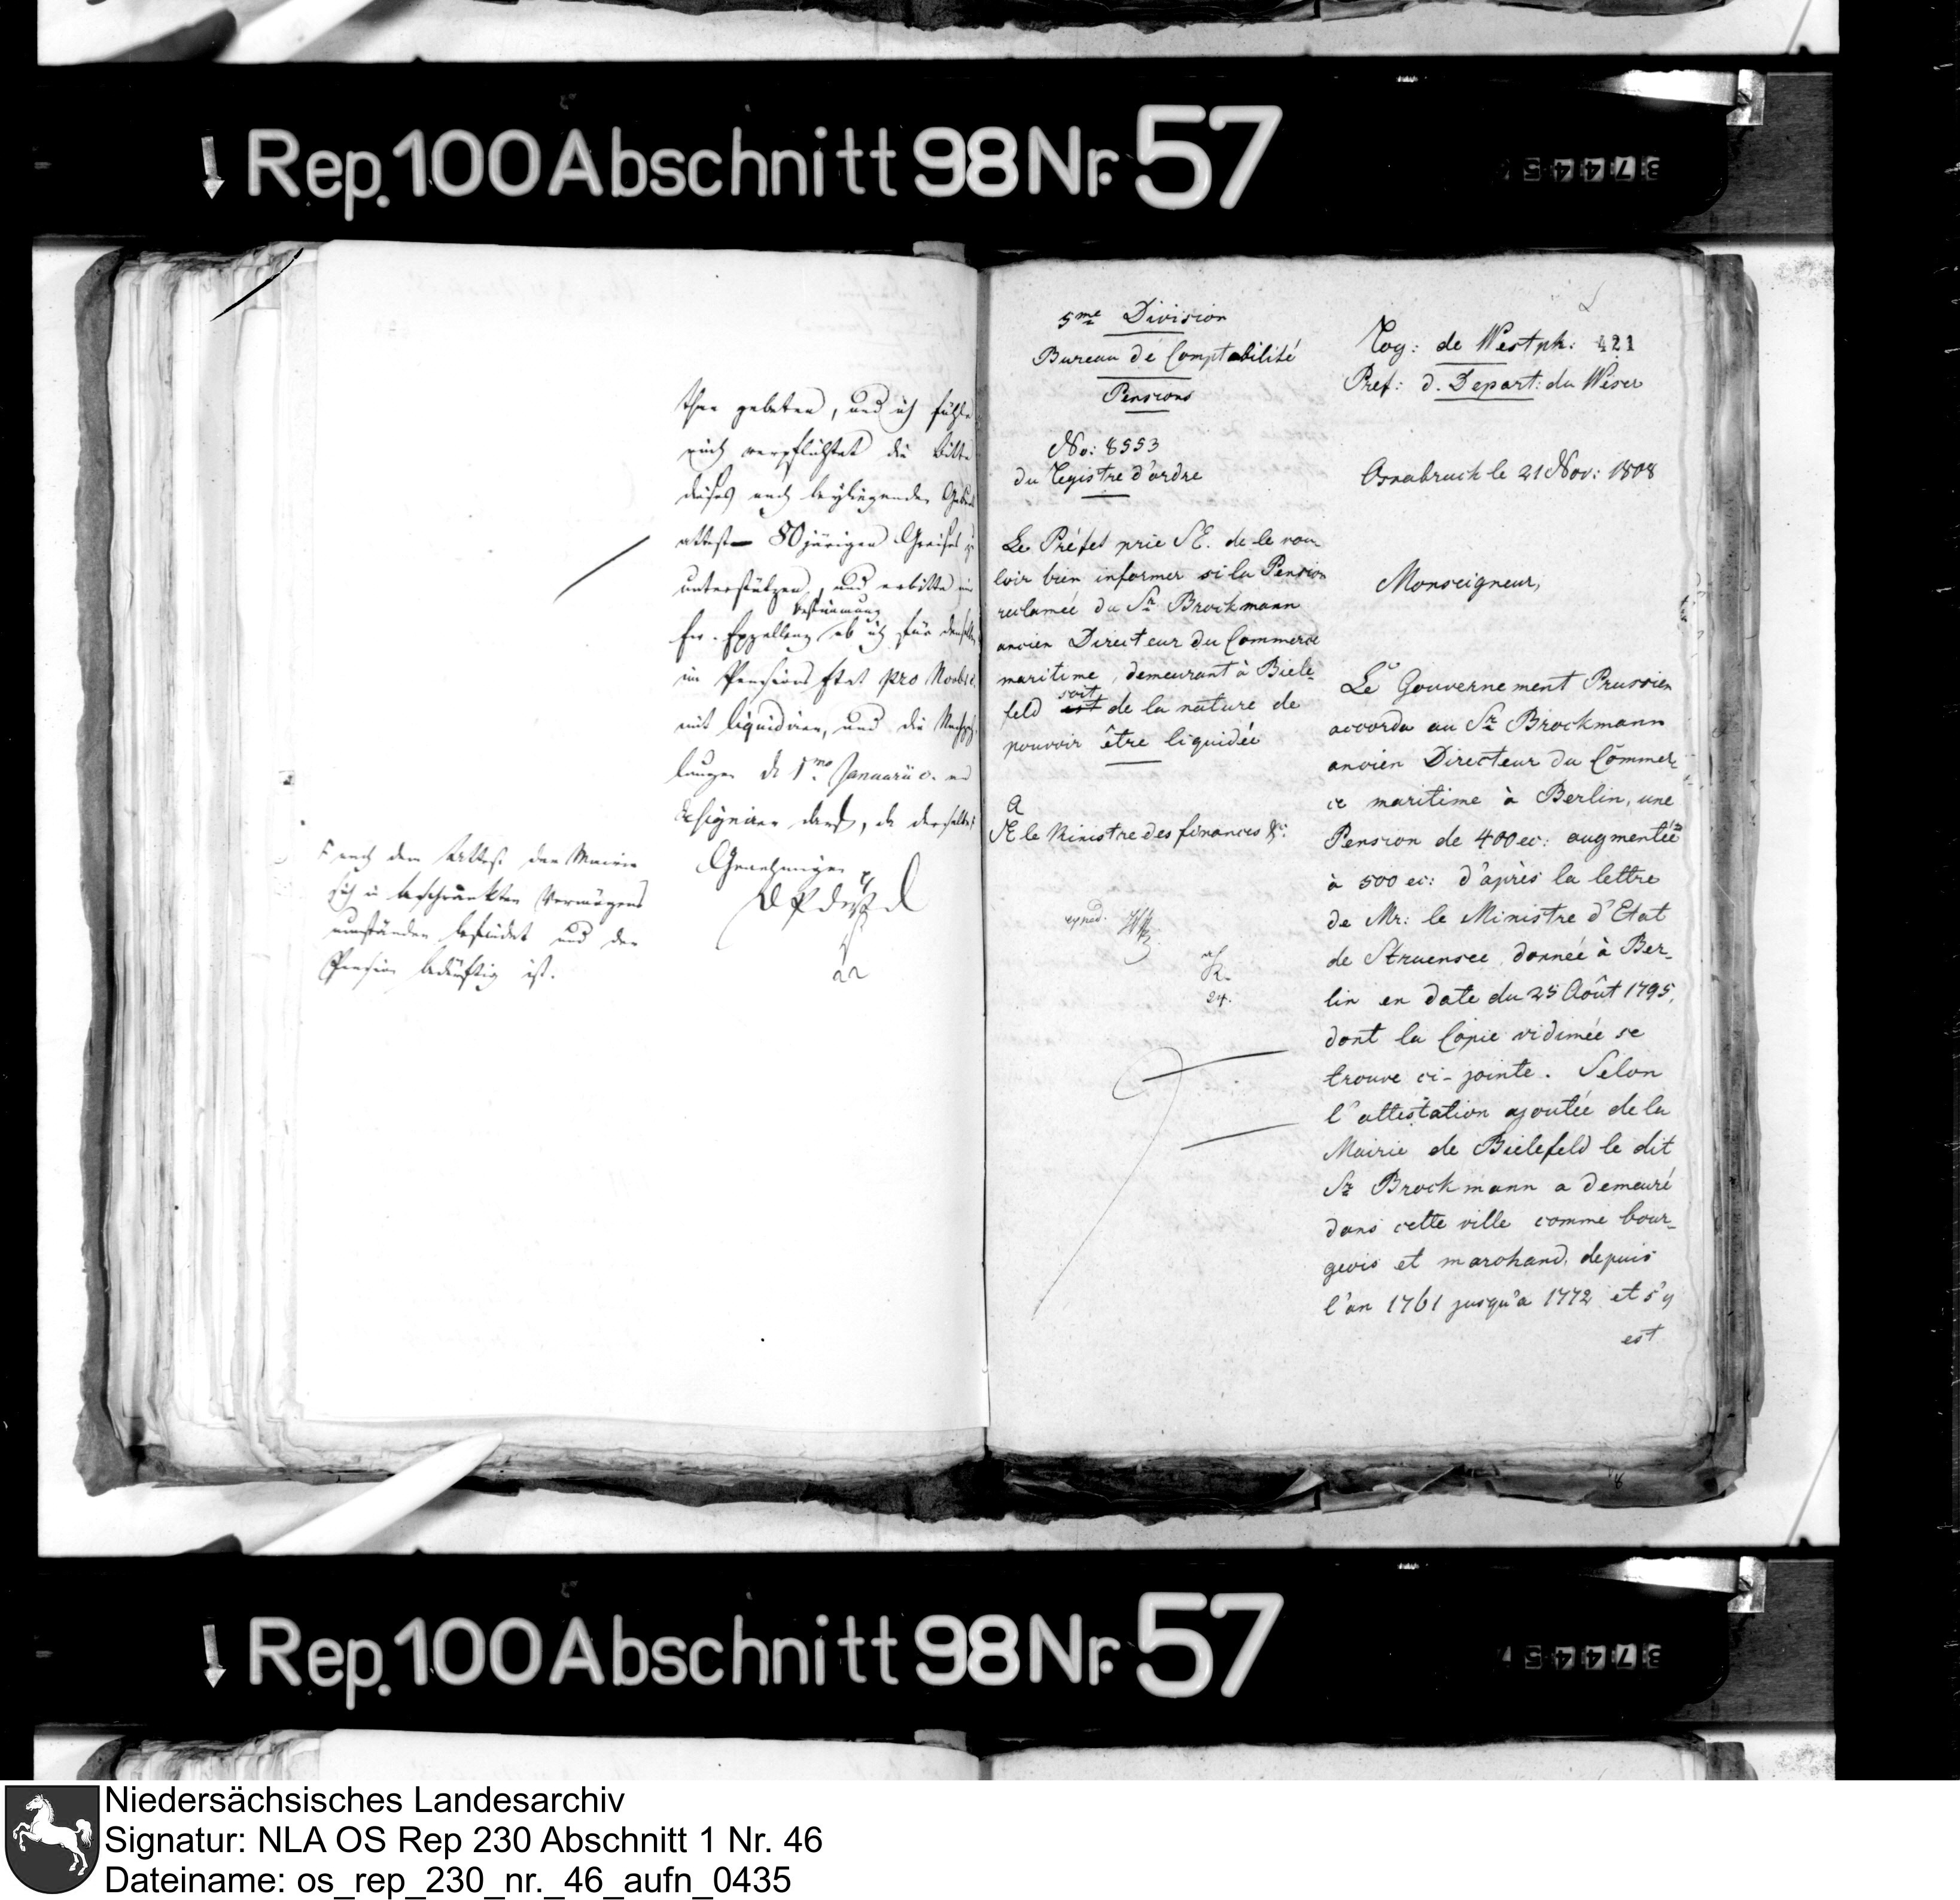 Rep. 100 Abschnitt 98 Nr. 57
37445
gebeten, und ich fühle
mich verpflichtet die Bitte
dieses nach beyliegendem
attest 80jährigen Greises zu
unterstützen, und erbitte mir
Bestimmung
Ew. Expellenz ob ich für denselben
im Pensions Etat pro
mit liquidiren, und die
de 1mo Januarii c. an
designiren darf,
Genehmigen
22
F nach dem Attest der Mairie
sich in beschränkten Vermögens
umständen befindet und der
Pension bedürftig ist.
5me Division
Bureau de Comptabilité
Pensions
No: 8553
du Registre d'ordre
Le Préfet prie S.E. de le vou-
loir bien informer si la Pension
reclamée du Sr Brockmann
ancien Directeur du Commerce
maritime, demeurant à Biele-
soit
feld est de la nature de
pouvoir être liquidée
A
SE le Ministre des finances &c:
exped.
24.
Roy: de Westph: 421
Pref: d. Depart: du Weser
Osnabruck le 21 Nov: 1808
Monseigneur,
Le Gouvernement Prussien
accorda au Sr Brockmann
ancien Directeur du Commer-
ce maritime à Berlin, une
Pension de 400 ec: augmentée
à 500 ec: d'après la lettre
de Mr: le Ministre d'Etat
de Struensee donnée à Ber-
lin en date du 25 Août 1795,
dont la Copie vidimée se
trouve ci-jointe. Selon
l'attestation ajoutée de la
Mairie de Bielefeld le dit
Sr Brockmann a demeuré
dans cette ville comme bour-
geois et marchand, depuis
l'an 1761 jusqu'a 1772 et s'y
est
Rep. 100 Abschnitt 98 Nr. 57
37445
Niedersächsisches Landesarchiv
Signatur: NLA OS Rep 230 Abschnitt 1 Nr. 46
Dateiname: os_rep_230_nr._46_aufn_0435